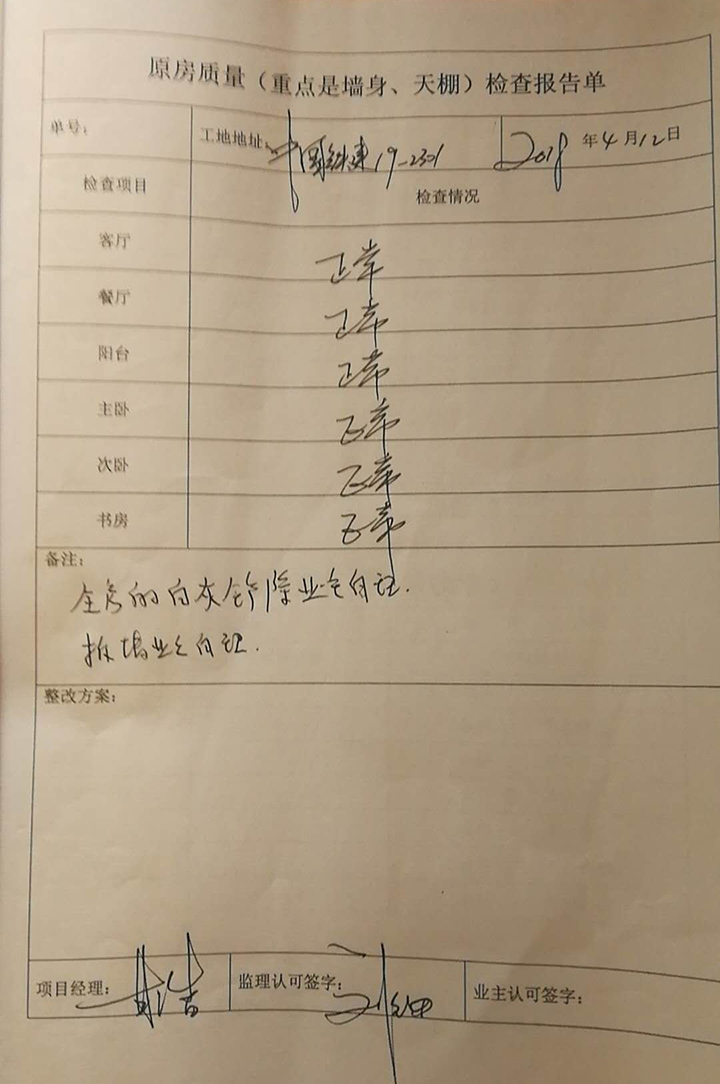 原房质量（重点是墙身、天棚）检查报告单
单号： 工地地址： 中国铁建19-2321 2018年4月12日
检查项目 检查情况
客厅 正常
餐厅 正常
阳台 正常
主卧 正常
次卧 正常
书房 正常
备注：
全房的白灰铲除业主自理.
拆墙业主自理.
整改方案：
项目经理： 监理认可签字： 业主认可签字：